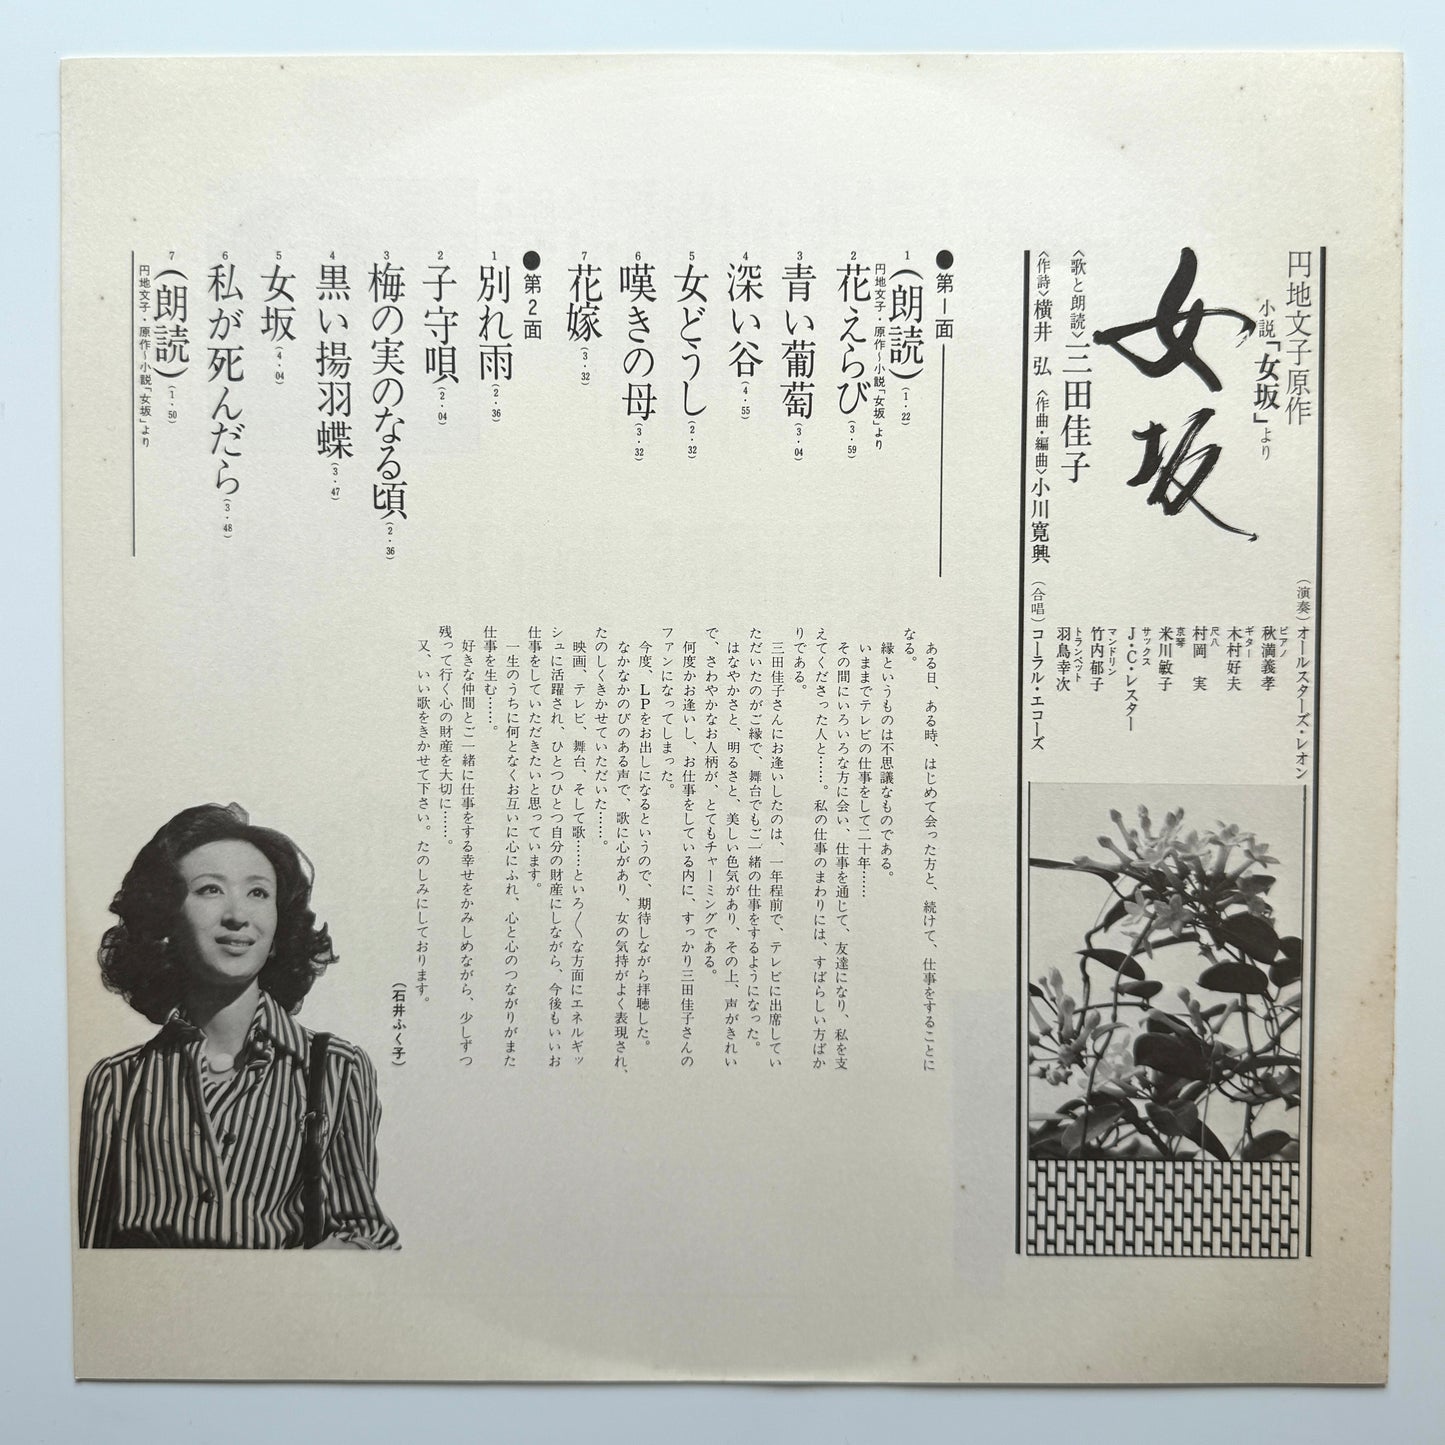 円地文子原作
小説「女坂」より
女坂
〈歌と朗読〉三田佳子
〈作詩〉横井 弘 〈作曲・編曲〉小川寛興
(演奏)オールスターズ・レオン
ピアノ
秋満義孝
ギター
木村好夫
尺八
村岡 実
京琴
米川敏子
サックス
J・C・レスター
マンドリン
竹内郁子
トランペット
羽鳥幸次
(合唱)コーラル・エコーズ
●第1面
1 (朗読)(1・22)
円地文子・原作〜小説「女坂」より
2 花えらび(3・59)
3 青い葡萄(3・04)
4 深い谷(4・55)
5 女どうし(2・32)
6 嘆きの母(3・32)
7 花嫁(3・32)
●第2面
1 別れ雨(2・36)
2 子守唄(2・04)
3 梅の実のなる頃(2・36)
4 黒い揚羽蝶(3・47)
5 女坂(4・04)
6 私が死んだら(3・48)
7 (朗読)(1・50)
円地文子・原作〜小説「女坂」より
ある日、ある時、はじめて会った方と、続けて、仕事をすることに
なる。
縁というものは不思議なものである。
いままでテレビの仕事をして二十年……
その間にいろいろな方に会い、仕事を通じて、友達になり、私を支
えてくださった人と……。私の仕事のまわりには、すばらしい方ばか
りである。
三田佳子さんにお逢いしたのは、一年程前で、テレビに出席してい
ただいたのがご縁で、舞台でもご一緒の仕事をするようになった。
はなやかさと、明るさと、美しい色気があり、その上、声がきれい
で、さわやかなお人柄が、とてもチャーミングである。
何度かお逢いし、お仕事をしている内に、すっかり三田佳子さんの
ファンになってしまった。
今度、LPをお出しになるというので、期待しながら拝聴した。
なかなかのびのある声で、歌に心があり、女の気持がよく表現され、
たのしくきかせていただいた……。
映画、テレビ、舞台、そして歌……といろ〳〵な方面にエネルギッ
シュに活躍され、ひとつひとつ自分の財産にしながら、今後もいいお
仕事をしていただきたいと思っています。
一生のうちに何となくお互いに心にふれ、心と心のつながりがまた
仕事を生む……。
好きな仲間とご一緒に仕事をする幸せをかみしめながら、少しずつ
残って行く心の財産を大切に……。
又、いい歌をきかせて下さい。たのしみにしております。
(石井ふく子)